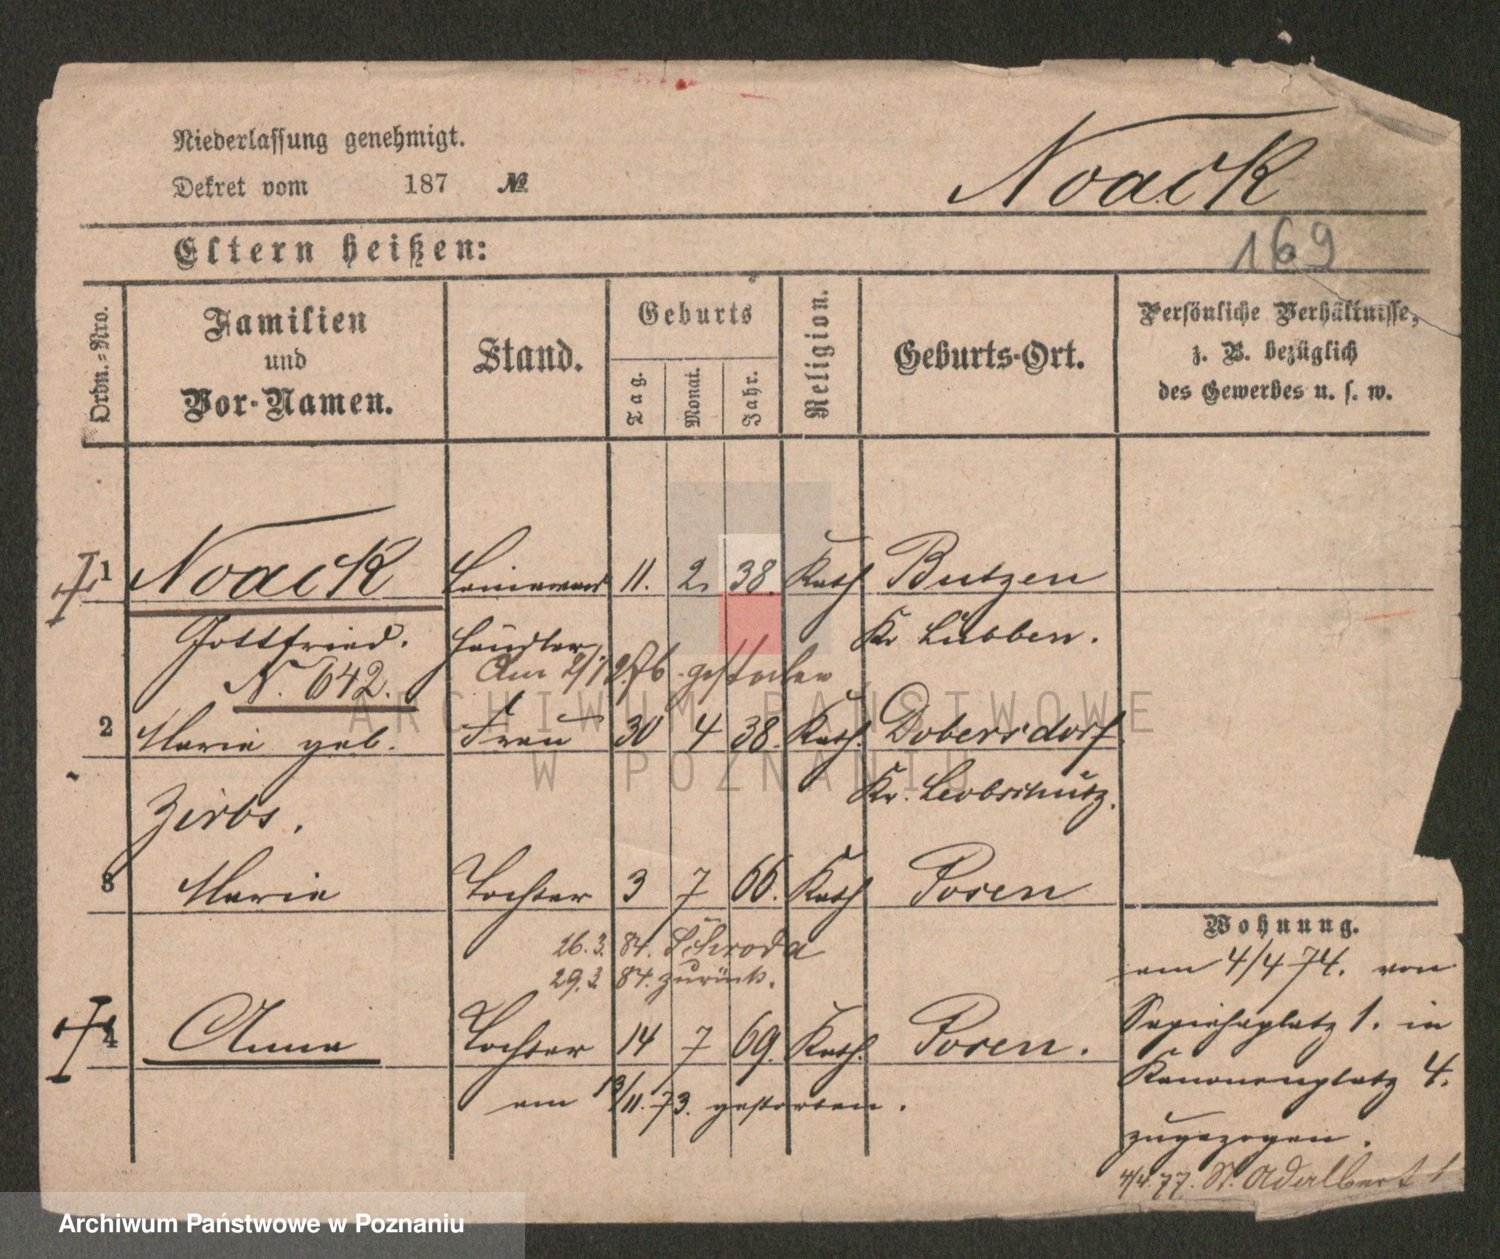 Niederlassung genehmigt.
Dekret vom 187 №
Noack
Eltern heißen:
169
Ordn.-Nro.
Familien und Vor-Namen.
Stand.
Geburts
Tag.
Monat.
Jahr.
Religion.
Geburts-Ort.
Persönliche Verhältnisse,
z. B. bezüglich
des Gewerbes u. s. w.
1 Noack Leinwand 11. 2. 38. Kath Butzen
Gottfried. händler. Kr Lübben.
N. 642. Am gestorben
2 Marie geb. Frau 30 4 38. Kath. Dobersdorf
Zirbs. Kr. Leobschütz.
3 Marie Tochter 3 7 66. Kath Posen
26.3. 84. Schroda
29.3. 84. zurück.
4 Anna Tochter 14 7 69. Kath. Posen.
am 13/11.73. gestorben.
Wohnung.
am 4/4 74. von
Sapiehaplatz 1. in
Kanonenplatz 4.
zugezogen.
4/4.77. St. Adalbert 1
ARCHIWUM PAŃSTWOWE
W POZNANIU
Archiwum Państwowe w Poznaniu